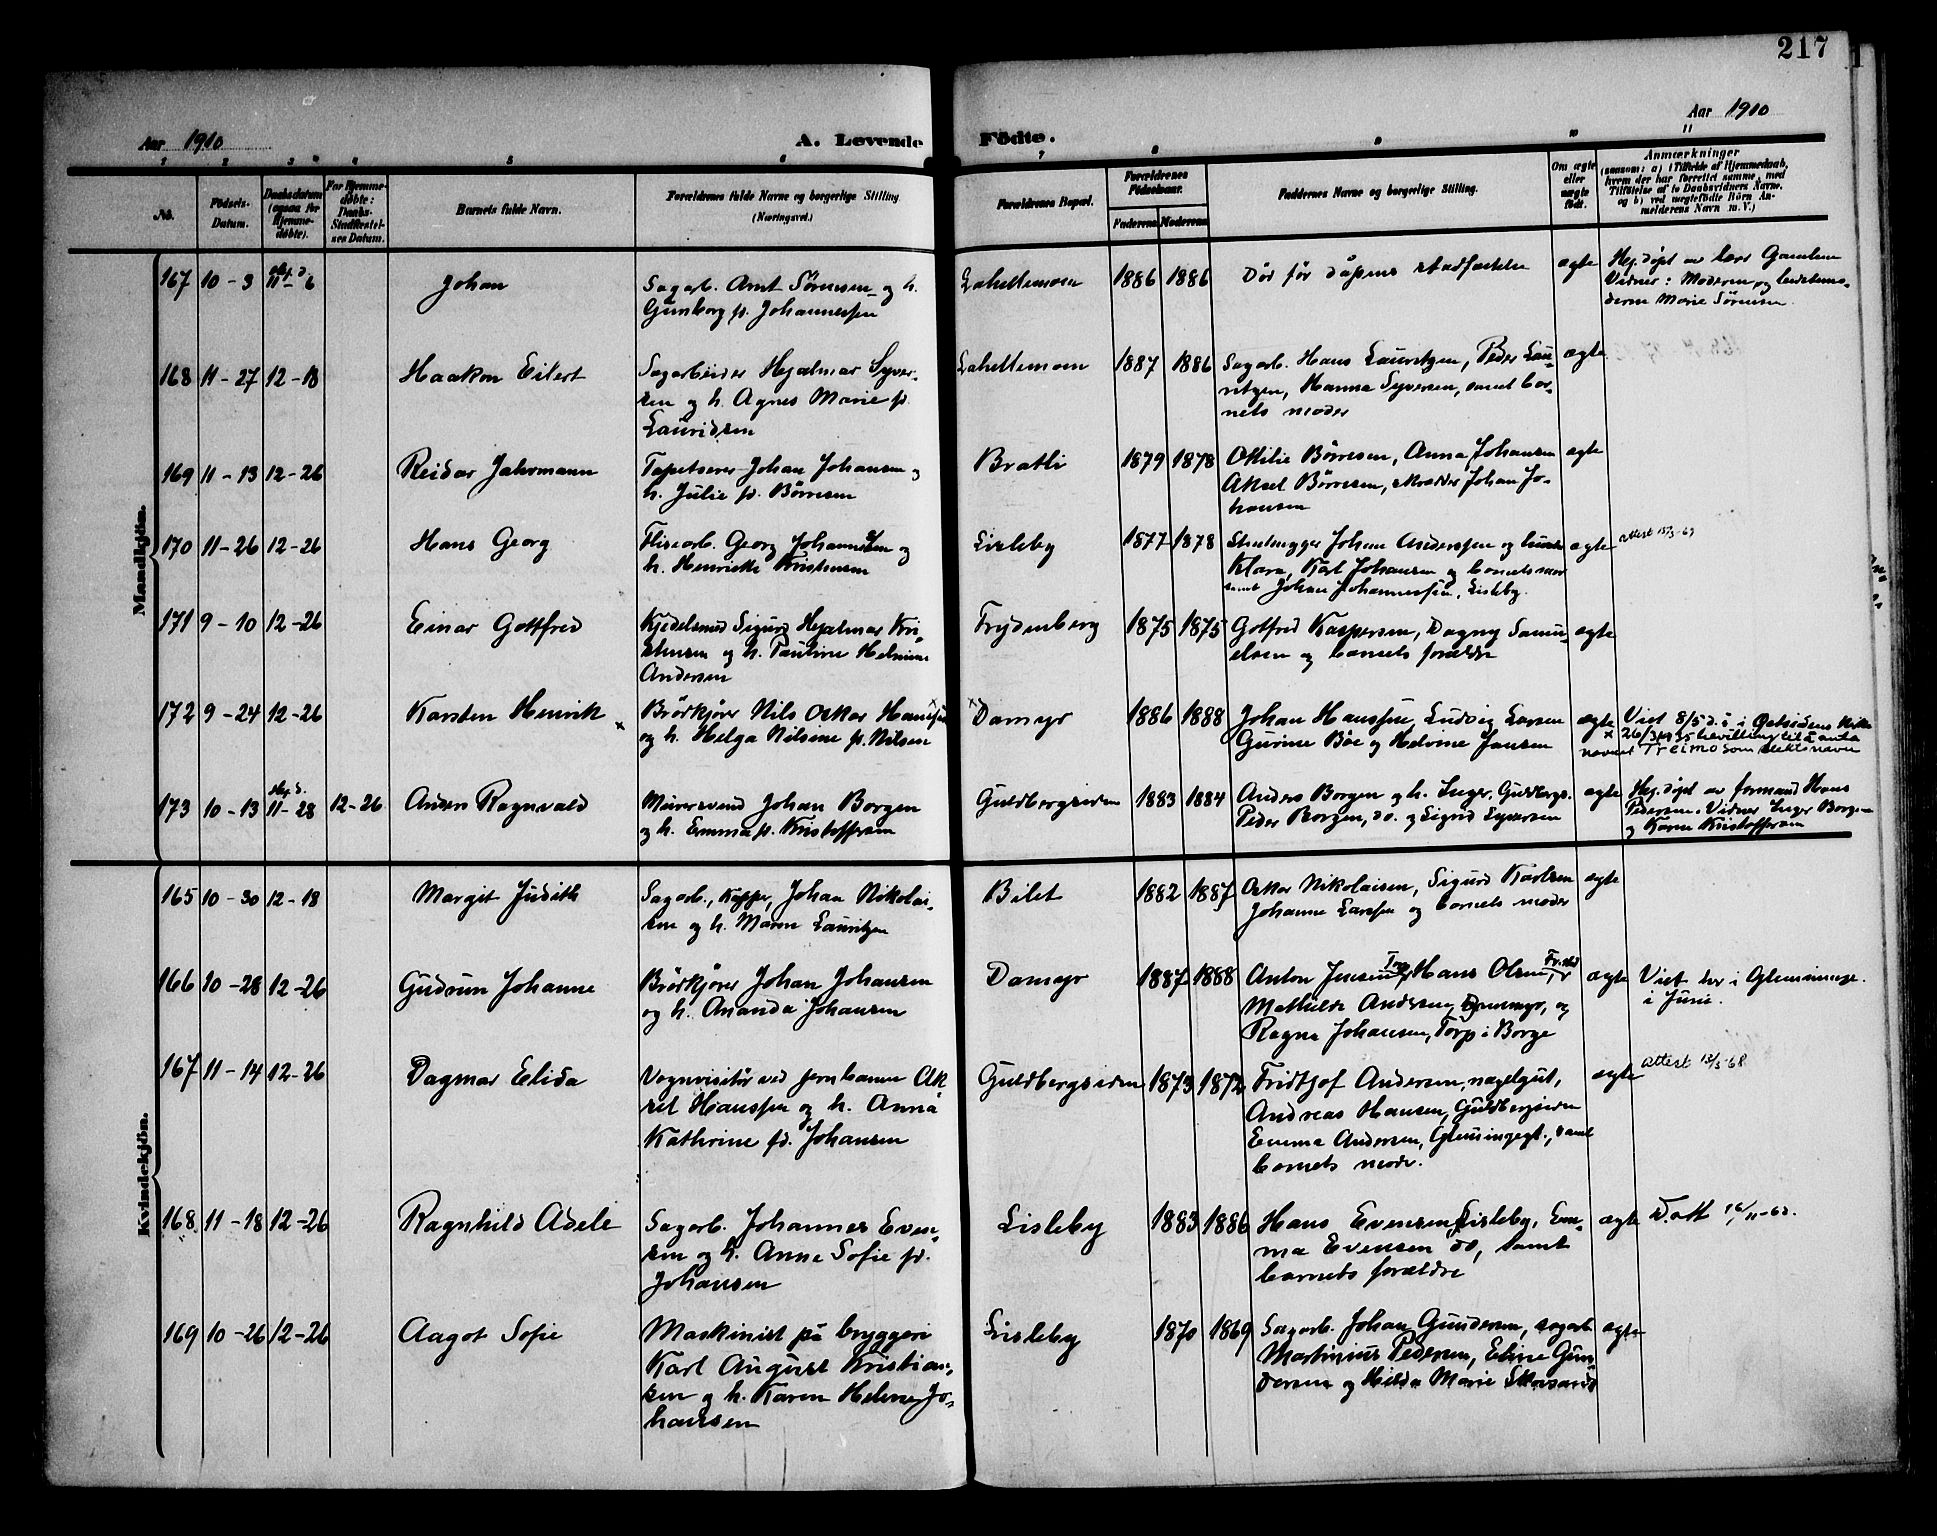 217
Aar 1910
A. Levende
Födte.
Aar 1910
1 2 3 4 5 6 7 8 9 10 11
No.
Födsels-
Datum.
Daabsdatum
(ogsaa for
Hjemme-
döbte).
For Hjemme-
döbte:
Daabs-
Stadfæstel-
ses Datum.
Barnets fulde Navn.
Forældrenes fulde Navne og borgerlige Stilling
(Næringsvei.)
Forældrenes Bopæl.
Forældrenes
Födselsaar.
Faderens Moderens
Faddernes Navne og borgerlige Stilling.
Om ægte
eller
uægte
födt.
Anmærkninger
(saasom: a) i Tilfælde af Hjemmedaab,
hvem der har forrettet samme, med
Tilföielse af to Daabsvidners Navne,
og b) ved uægtefödte Börn An-
melderens Navn m. V.)
Mandkjön.
167 10-3 11-6 Johan
Sagarb. Arnt Sörensen og h.
Gunborg f. Johannessen
Lahellemoen 1886 1886 Död för dåpens stadfæstelse ægte
Hj. döpt av lærer
Vidner: Moderen og bedstemo-
deren Marie Sörensen.
168 11-27 12-18 Haakon Eilert
Sagarbeider Hjalmar Syver-
sen og h. Agnes Marie f.
Lauridsen
Lahellemoen 1887 1886 Sagarb. Hans Lauritzen, Peder Lau-
ritzen, Hanna Syversen, samt bar-
nets moder
ægte
169 11-13 12-26 Reidar Jahrmann
Tapetserer Johan Johansen og
h. Julie f. Börresen
Bratli 1879 1878 Ottilie Börresen, Anna Johansen
Aksel Börresen, skrædder Johan Jo-
hansen
ægte
170 11-26 12-26 Hans Georg
Flisearb. Georg Johannesen og
h. Henrikke Kristensen
Lisleby 1877 1878 Johan Anderssen og
Klara, Karl Johansen og barnets
samt Johan Johannessen, Lisleby.
ægte attest
171 9-10 12-26 Einar Gottfred
Kjedelsmed Sigurd Hjalmar Kri-
stensen og h. Pauline Helmine
Andersen
Frydenberg 1875 1875 Gotfred Kaspersen, Dagny Samu-
elsen og barnets forældre
ægte
172 9-24 12-26 Karsten Henrik x
Brödkjörer Nils Oskar Hanssen x
og h. Helga Nilsine f. Nilsen
x Damyr 1886 1888 Johan Hanssen, Ludvig Larsen
Gurine Böe og Helvine Jansen
ægte
Viet 8/5 d.å. i
x 26/3 1935 bevilling til å anta
navnet Treimo som slektsnavn
173 10-13 11-28 12-26 Anders Ragnvald
Murersvend Johan Borgen
og h. Emma f. Kristoffersen
Guldbergsiden 1883 1884 Anders Borgen og h. Inger, Guldbergs.
Peder Borgen, do. og Sigrid Syversen
ægte
Hj. döpt av formand Hans
Pedersen. Vidner Inger Borgen
og Karen Kristoffersen
Kvindekjön.
165 10-30 12-18 Margit Judith
Sagarb., Johan Nikolai-
sen og h. Maren Lauritzen
Bilet 1882 1887 Oskar Nikolaisen, Sigurd Karlsen
Johanne Larssen og barnets moder
ægte
166 10-28 12-26 Gudrun Johanne
Brödkjörer Johan Johansen
og h. Ananda Johansen
Damyr 1887 1888 Anton Jensen, Torp, Hans Olsen,
Mathilde Andersen, og
Ragna Johansen, Torp i Borge
ægte
Viet her i Glemminge.
i Juni.
167 11-14 12-26 Dagmar Elida
Vognvisitör ved jernbanen Ak-
sel Hanssen og h. Anna
Kathrine fd. Johansen
Guldbergsiden 1873 1872 Fridtjof Andersen, nagelgut,
Andreas Hansen, Guldbergsiden
Emma Andersen, Glemmingegt., samt
barnets mode.
ægte attest
168 11-18 12-26 Ragnhild Adele
Sagarb. Johannes Even-
sen og h. Anne Sofie fd.
Johansen
Lisleby 1883 1886 Hans Evensen, Lisleby, Em-
ma Evensen do, samt
barnets forældre
ægte D. att
169 10-26 12-26 Aagot Sofie
Maskinist på bryggeri
Karl August Kristian-
sen og h. Karen Helene Jo-
hansen
Lisleby 1870 1869 Sagarb. Johan Gundersen, sagarb
Martinius Pedersen, Eline Gun-
dersen og Hilda Marie
ægte